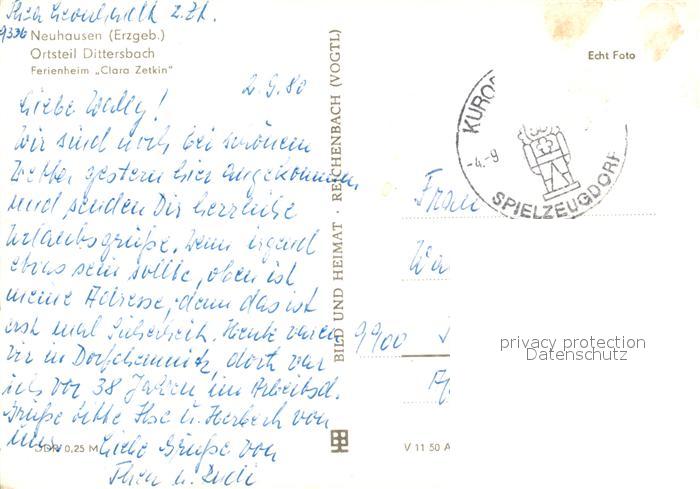 Thea Leonhardt z.Zt.
9336 Neuhausen (Erzgeb.)
Ortsteil Dittersbach
Ferienheim „Clara Zetkin"
2.9.80
Liebe Wally!
Wir sind noch bei schönem
Wetter gestern hier angekommen
und senden Dir herzliche
Urlaubsgrüße. Wenn irgend
etwas sein sollte, oben ist
meine Adresse, denn das ist
erst mal Sicherheit. Heute waren
wir in Dorfchemnitz, dort war
ich vor 38 Jahren im Arbeitsd.
Grüße bitte Ilse u. Herbert von
uns. Liebe Grüße von
Thea u. Rudi
DDR 0,25 M
BILD UND HEIMAT · REICHENBACH (VOGTL)
Echt Foto
KURO
-4.-9
SPIELZEUGDORF
Frau
Wa
9900
V 11 50 A
privacy protection
Datenschutz